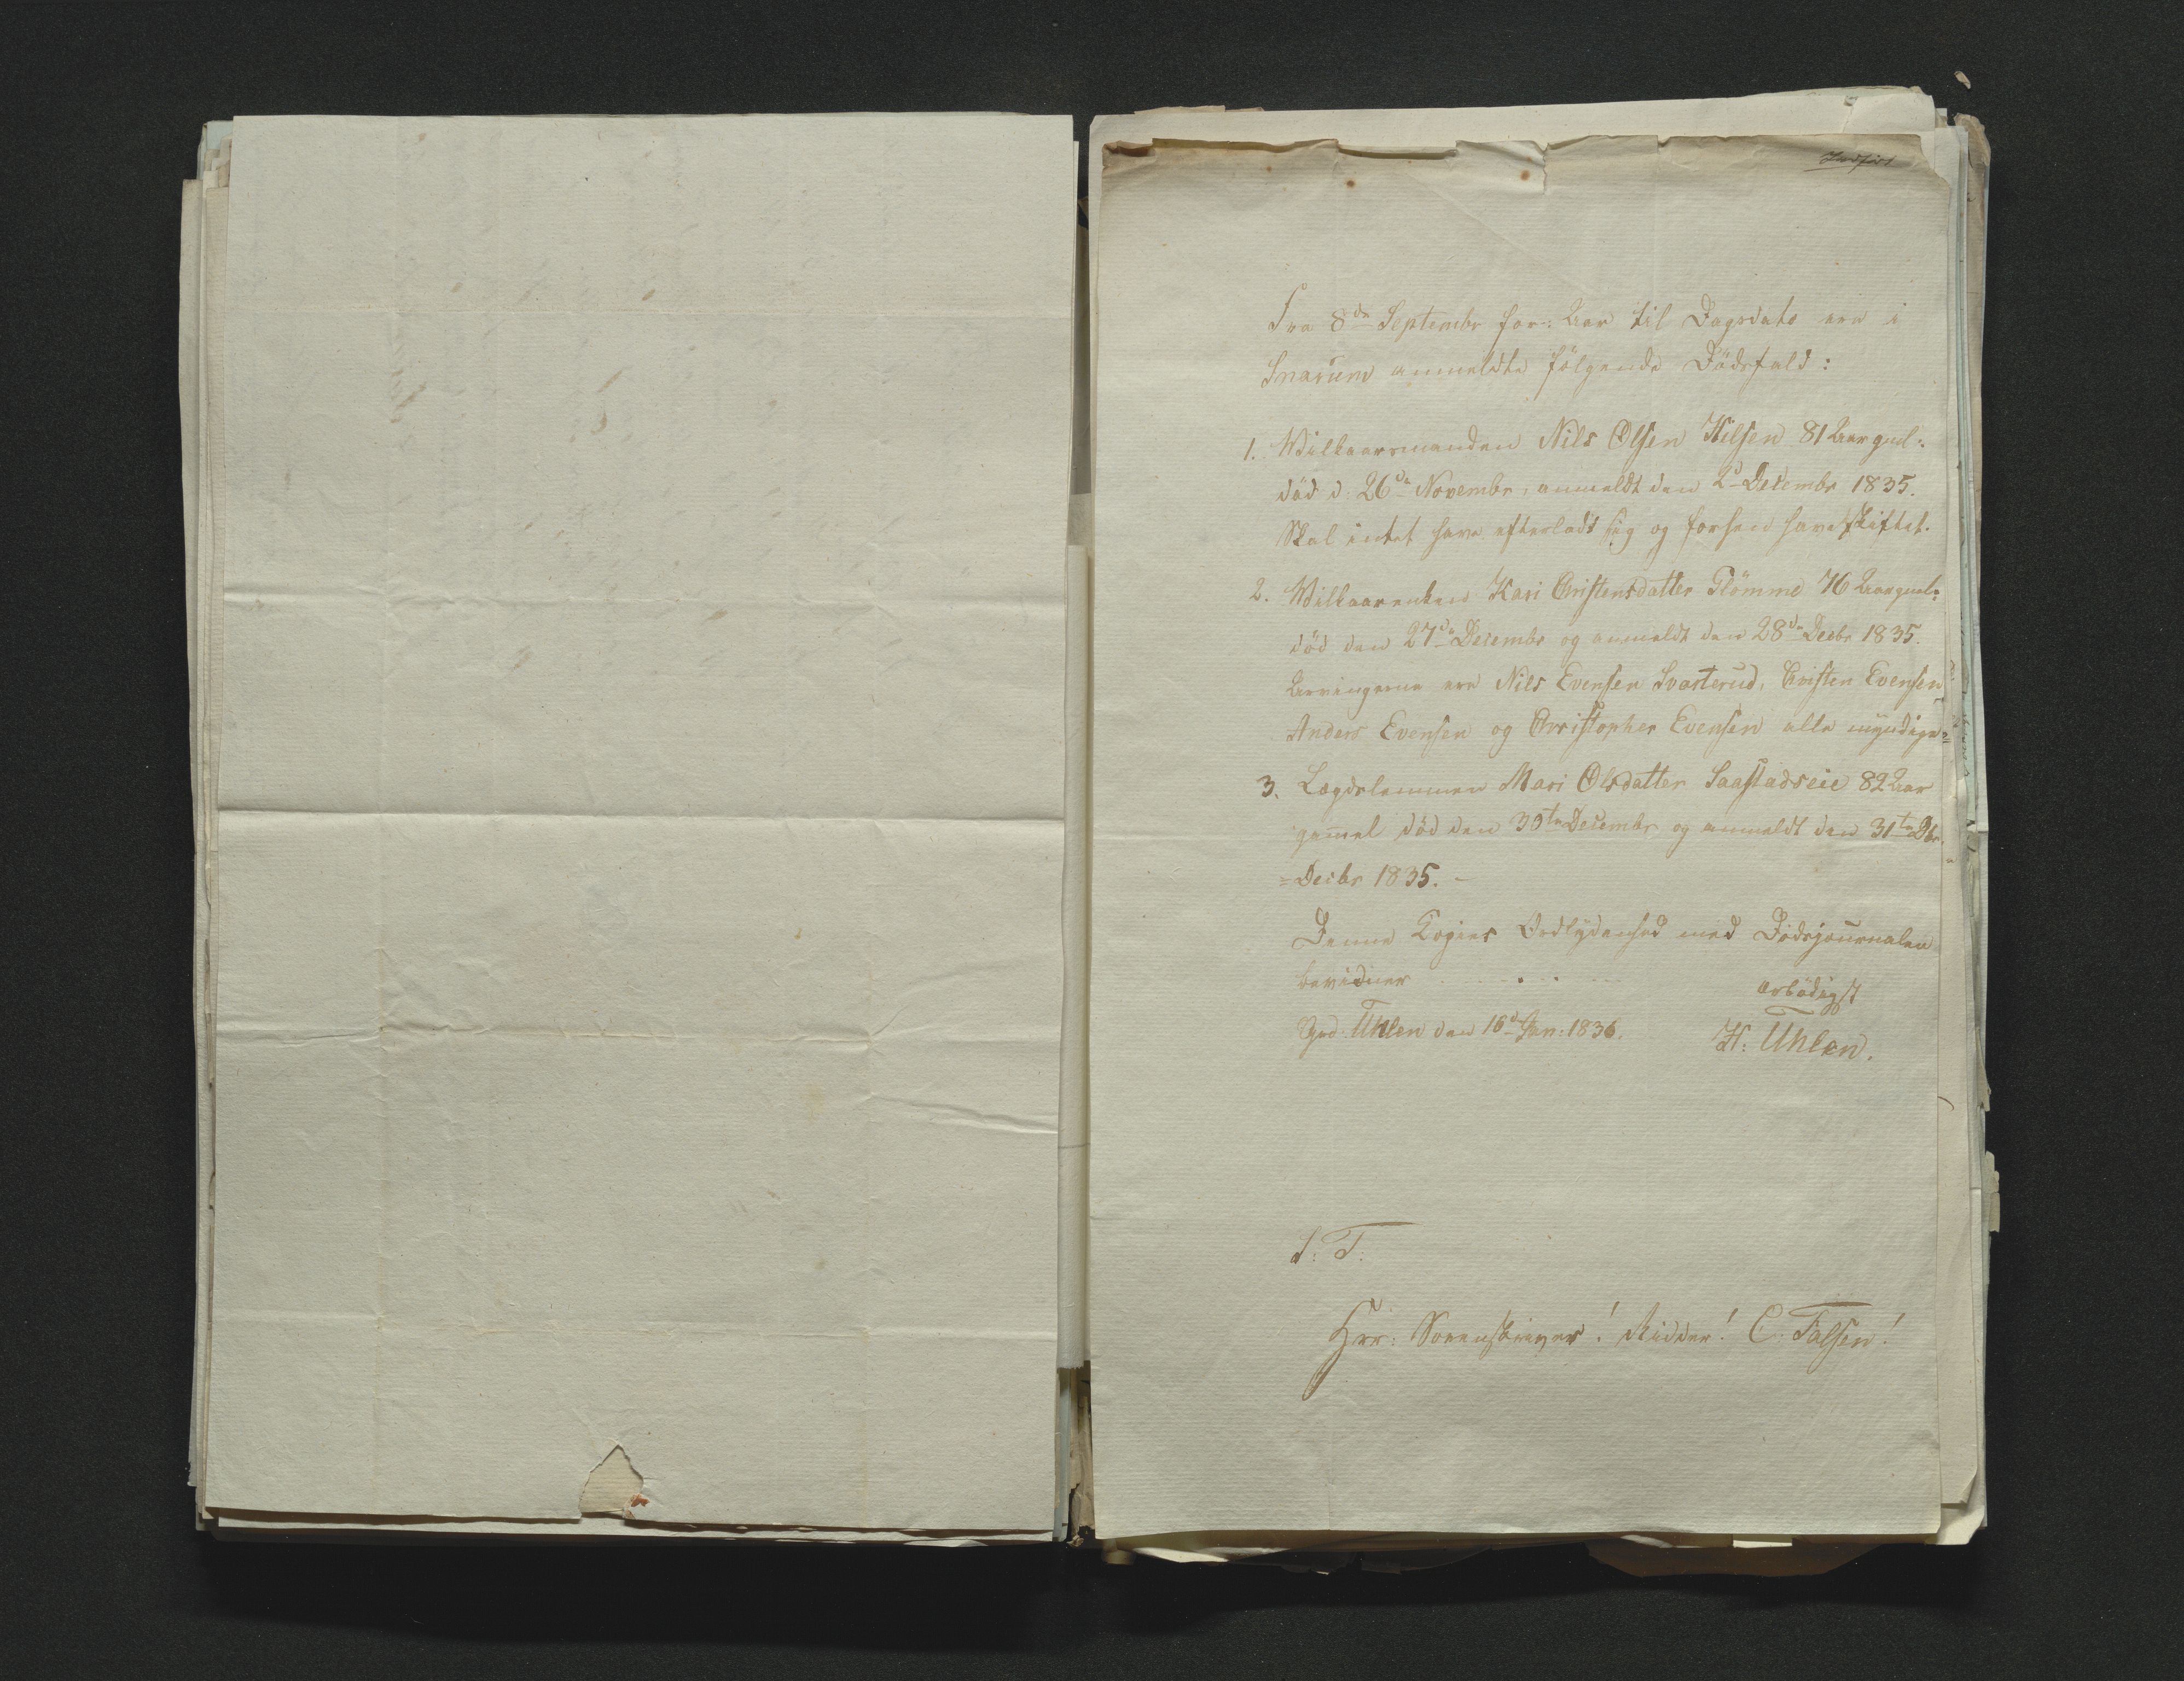 Indført
Fra 8de Septembr for: Aar til Dagsdato ere i
Snarum anmeldte følgende Dødsfald:
1. Wilkaarsmanden Nils Olsen Hilsen 81 Aar gml:
død d: 26de Novembr, anmeldt den 2d Decembr 1835.
Skal intet have efterladt sig og forhen have skiftet.
2. Wilkaarenken Kari Cristensdatter Plömme 76 Aar gml:
død den 27de Decembr og anmeldt den 28de Decbr 1835.
Arvingerne ere Nils Evensen Svarterud, Cristen Evensen
Anders Evensen og Christopher Evensen alle myndige
3. Lægdslemmen Mari Olsdatter Saastadseie 82 Aar
gamel død den 30te Decembr og anmeldt den 31te Dbr.
=Decbr 1835. -
Denne Copies Ordlydenhed med Dødsjournalen
bevidner
ærbødigst
Grd. Uhlen den 16d Jan: 1836.
H: Uhlen.
S: T:
Hrr: Sorenskriver! Ridder! C: Falsen!